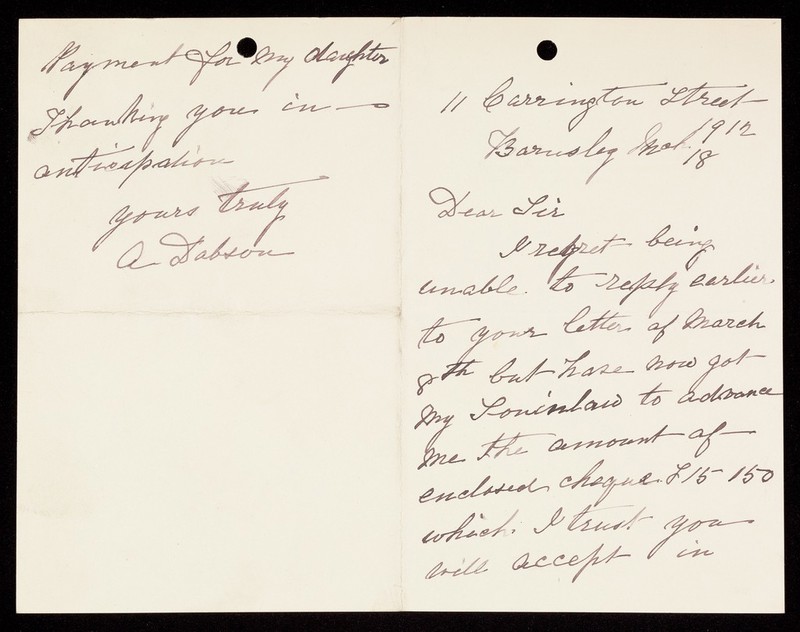 11 Carrington Street
Barnsley Mch 18
1912
Dear Sir
I regret being
unable to reply earlier
to your letter of March
8th but have now got
My Soninlaw to advance
Me the amount of
enclosed cheque £15 15 0
which I trust you
will accept in
Payment for My daughter
Thanking you in
anticapation
yours truly
A. Dobson